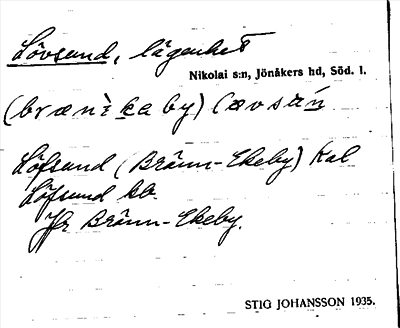 Lövsund, lägenhet
Nikolai s:n, Jönåkers hd, Söd. l.
by)
Löfsund (Bränn-Ekeby) Kal
Löfsund kb.
Jfr Bränn-Ekeby.
STIG JOHANSSON 1935.